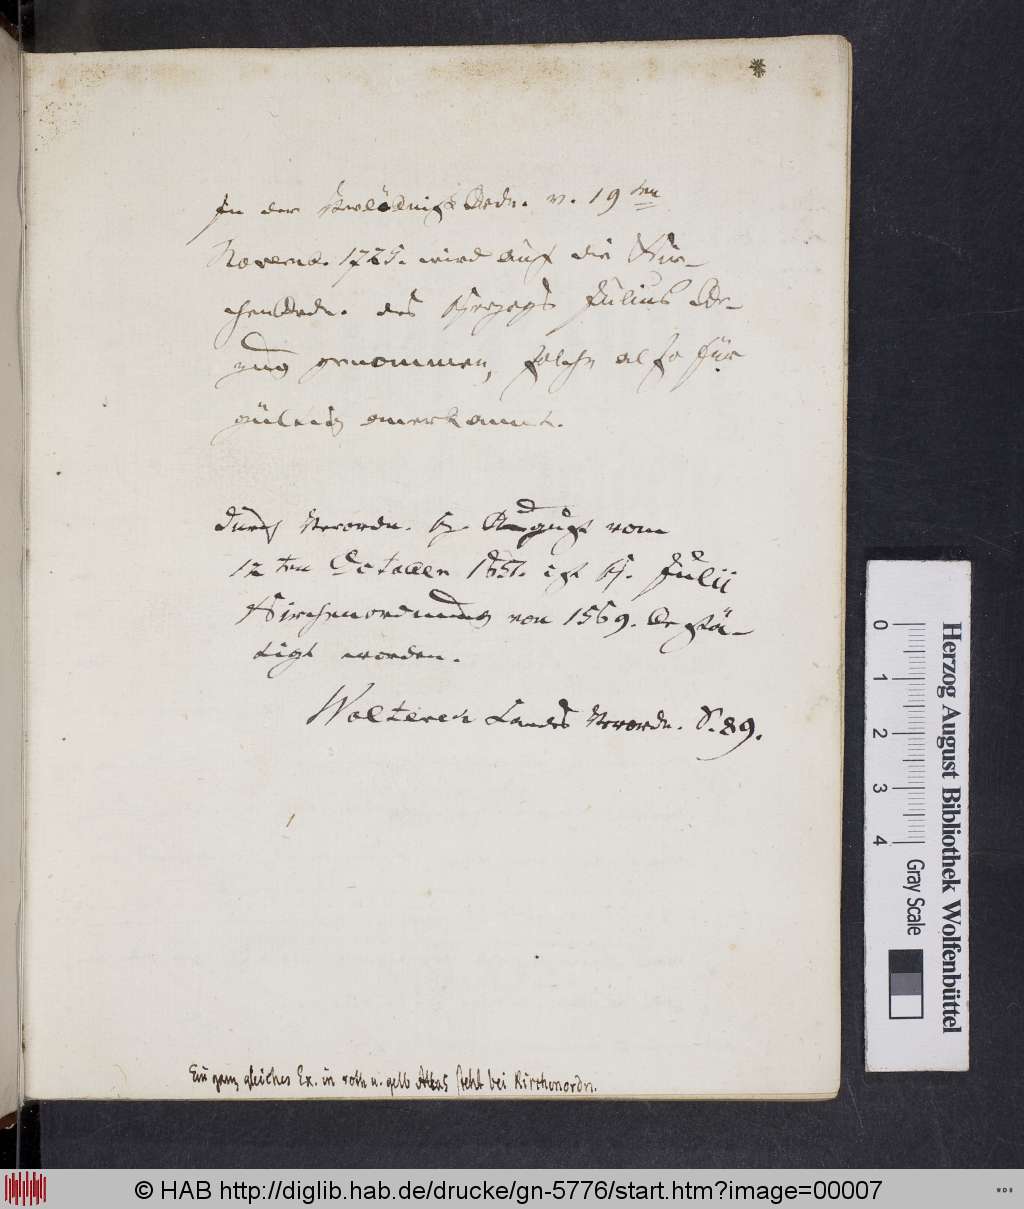 In der Verlöbniß Ordn. v. 19ten
Novemb. 1725. wird auf die Kir-
chenOrdn. des Herzogs Julius Be-
zug genommen, solche also für
gültig anerkannt.
Durch Verordn. H. August vom
12ten October 1651. ist H. Julii
Kirchenordnung von 1569. bestä-
tigt worden.
Woltereck Landes Verordn. S. 89.
Ein ganz gleiches Ex. in roth u. gelb Atlas steht bei Kirchenordn.
0 1 2 3 4
Herzog August Bibliothek Wolfenbüttel
Gray Scale
© HAB http://diglib.hab.de/drucke/gn-5776/start.htm?image=00007